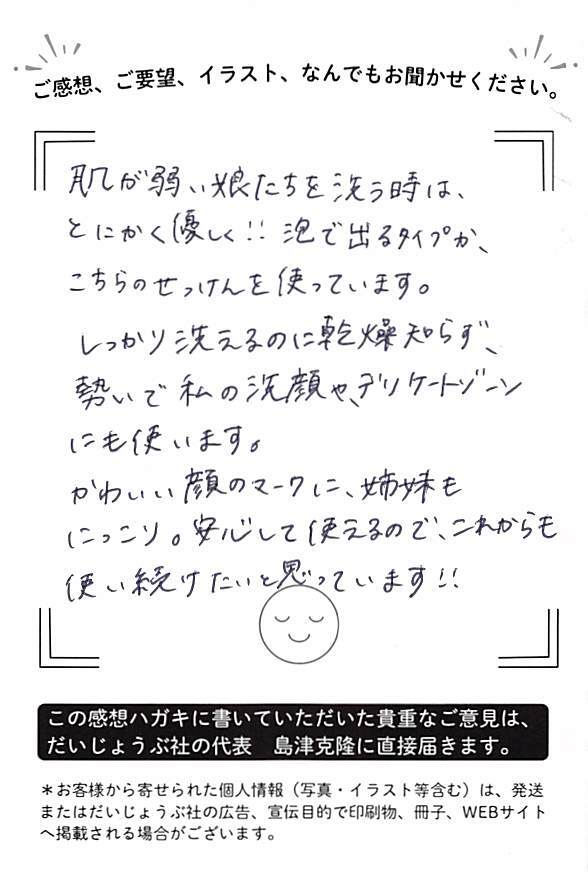 ご感想、ご要望、イラスト、なんでもお聞かせください。
肌が弱い娘たちを洗う時は、
とにかく優しく!! 泡で出るタイプか、
こちらのせっけんを使っています。
しっかり洗えるのに乾燥知らず、
勢いで私の洗顔や、デリケートゾーン
にも使います。
かわいい顔のマークに、姉妹も
にっこり。安心して使えるので、これからも
使い続けたいと思っています!!
この感想ハガキに書いていただいた貴重なご意見は、
だいじょうぶ社の代表　島津克隆に直接届きます。
＊お客様から寄せられた個人情報（写真・イラスト等含む）は、発送
またはだいじょうぶ社の広告、宣伝目的で印刷物、冊子、WEBサイト
へ掲載される場合がございます。